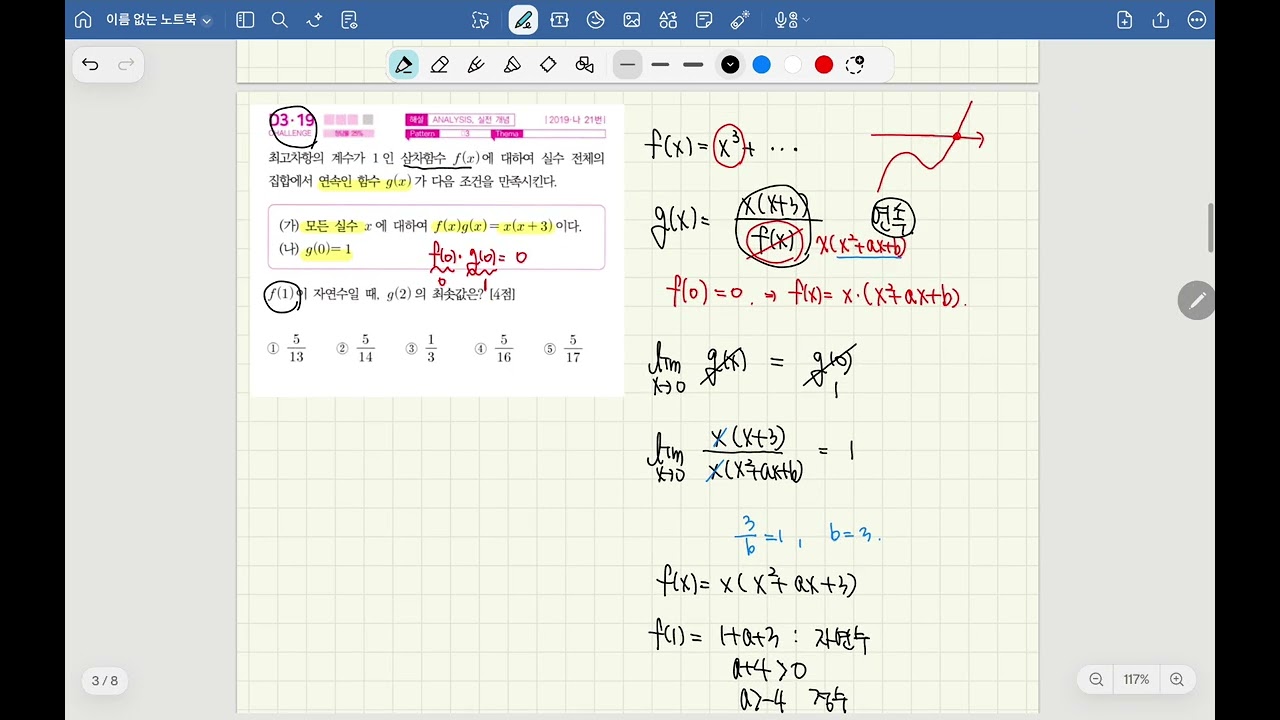 이름 없는 노트북
03·19
CHALLENGE
정답률 25%
해설 ANALYSIS, 실전 개념
|2019·나 21번|
Pattern 3 Thema
최고차항의 계수가 1인 삼차함수 f(x)에 대하여 실수 전체의
집합에서 연속인 함수 g(x)가 다음 조건을 만족시킨다.
(가) 모든 실수 x에 대하여 f(x)g(x)=x(x+3)이다.
(나) g(0)=1
f(0)·g(0)=0
0 1
f(1)이 자연수일 때, g(2)의 최솟값은? [4점]
① 5/13 ② 5/14 ③ 1/3 ④ 5/16 ⑤ 5/17
f(x)= x³+ ...
g(x)= x(x+3)/f(x) 연속
x(x²+ax+b)
f(0)=0. → f(x)= x·(x²+ax+b).
lim x→0 g(x) = g(0)
1
lim x→0 x(x+3)/x(x²+ax+b) = 1
3/b =1, b=3.
f(x)= x(x²+ax+3)
f(1)= 1+a+3 : 자연수
a+4>0
a>-4 정수
3 / 8
117%